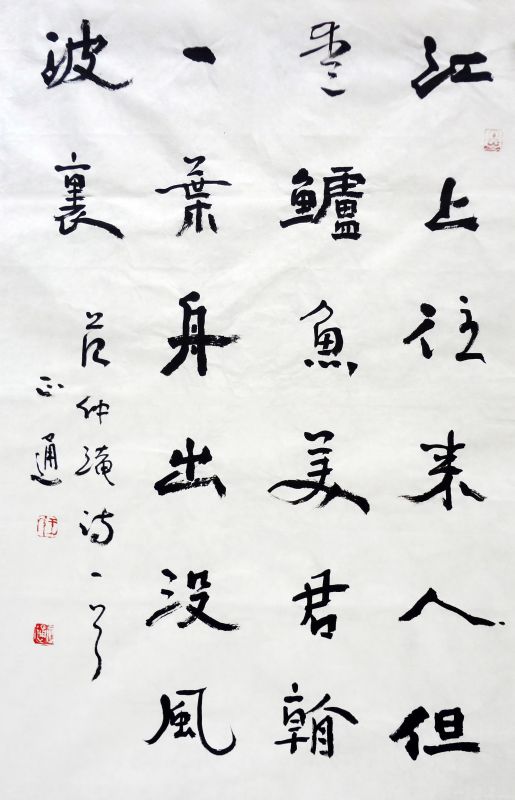 江上往来人但
爱鱸魚美君看
一葉舟出没風
波裏
范仲淹詩一首
正通